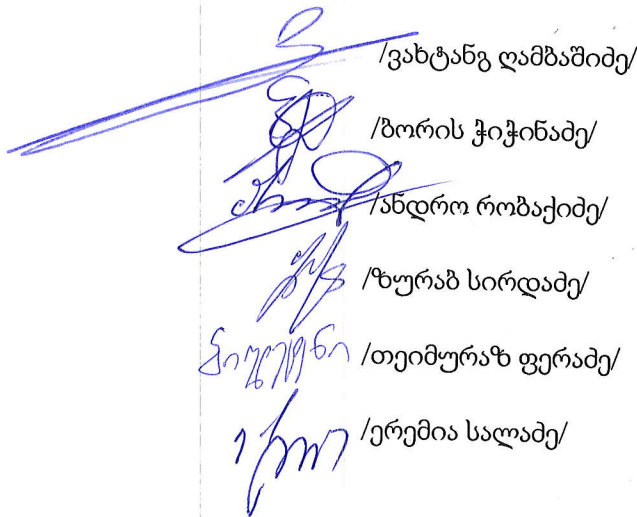 /ვახტანგ ღამბაშიძე/
/ბორის ჭიჭინაძე/
/ანდრო რობაქიძე/
/ზურაბ სირდაძე/
/თეიმურაზ ფერაძე/
/ერემია სალაძე/